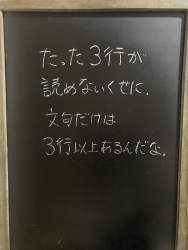 たった3行が
読めないくせに.
文句だけは
3行以上あるんだな.